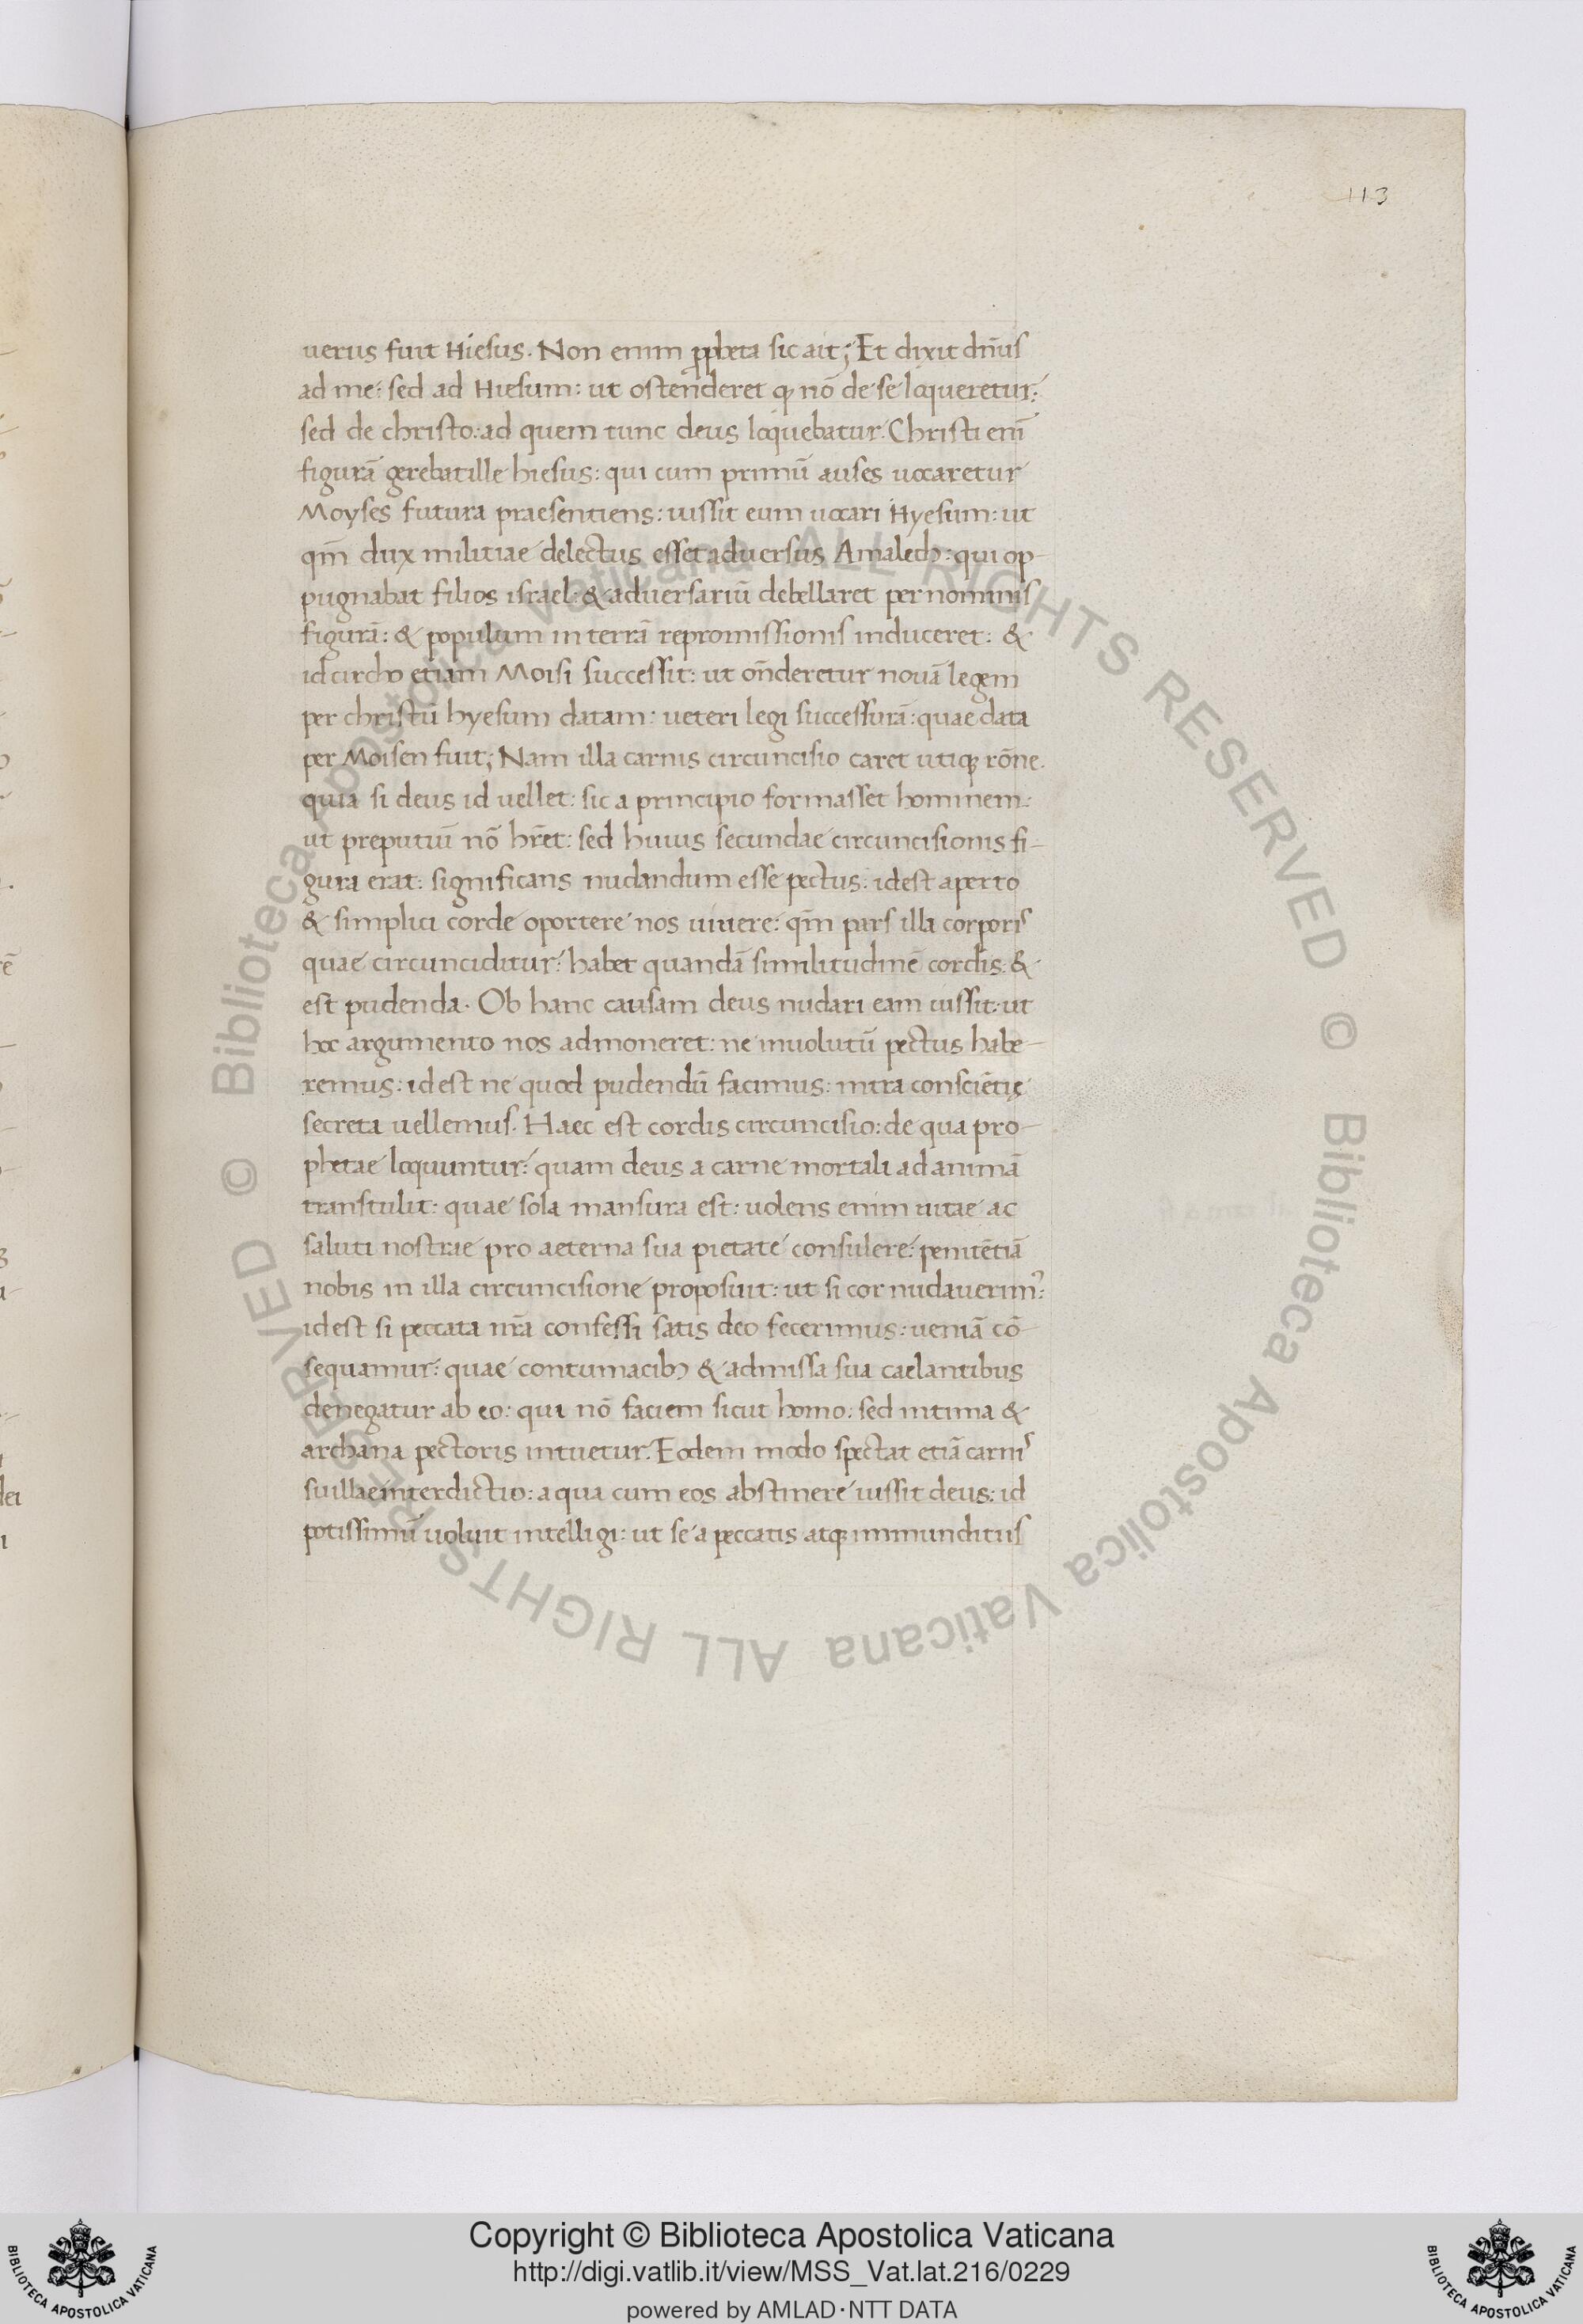 113
uerus fuit Hiesus. Non enim ꝓpheta sic ait; Et dixit dñus
ad me: sed ad Hiesum: ut ostenderet ꝙ nō de se loqueretur:
sed de christo: ad quem tunc deus loquebatur. Christi eni̅
figurā gerebat ille hiesus: qui cum primū auses uocaretur
Moyses futura praesentiens: iussit eum uocari Hyesum: ut
qm̅ dux militiae delectus esset aduersus Amalech: qui op-
pugnabat filios israel: & aduersariū debellaret per nominis
figurā: & populum in terrā repromissionis induceret: &
idcircho etiam Moisi successit: ut on̅deretur nouā legem
per christū hyesum datam: ueteri legi successurā: quae data
per Moisen fuit; Nam illa carnis circuncisio caret utiqꝫ rōne.
quia si deus id uellet: sic a principio formasset hominem:
ut preputiū nō hr̅et: sed huius secundae circuncisionis fi-
gura erat: significans nudandum esse pectus: idest aperto
& simplici corde oportere nos uiuere: qm̅ pars illa corporis
quae circunciditur: habet quandā similitudinē cordis: &
est pudenda. Ob hanc causam deus nudari eam iussit: ut
hoc argumento nos admoneret: ne inuolutū pectus habe-
remus: idest ne quod pudendū facimus: intra consciētię
secreta uellemus. Haec est cordis circuncisio: de qua pro-
phetae loquuntur: quam deus a carne mortali ad animā
transtulit: quae sola mansura est: uolens enim uitae ac
saluti nostrae pro aeterna sua pietate consulere: penitētiā
nobis in illa circuncisione proposuit: ut si cor nudauerimꝰ:
idest si peccata nr̅a confessi satis deo fecerimus: ueniā cō-
sequamur: quae contumacibꝫ & admissa sua caelantibus
denegatur ab eo: qui nō faciem sicut homo: sed intima &
archana pectoris intuetur. Eodem modo spectat etiā carnis
suillae interdictio: a qua cum eos abstinere iussit deus: id
potissimū uoluit intelligi: ut se a peccatis atqꝫ immunditiis
© Biblioteca Apostolica Vaticana ALL RIGHTS RESERVED © Biblioteca Apostolica Vaticana ALL RIGHTS RESERVED
Copyright © Biblioteca Apostolica Vaticana
http://digi.vatlib.it/view/MSS_Vat.lat.216/0229
powered by AMLAD·NTT DATA
BIBLIOTECA APOSTOLICA VATICANA
BIBLIOTECA APOSTOLICA VATICANA